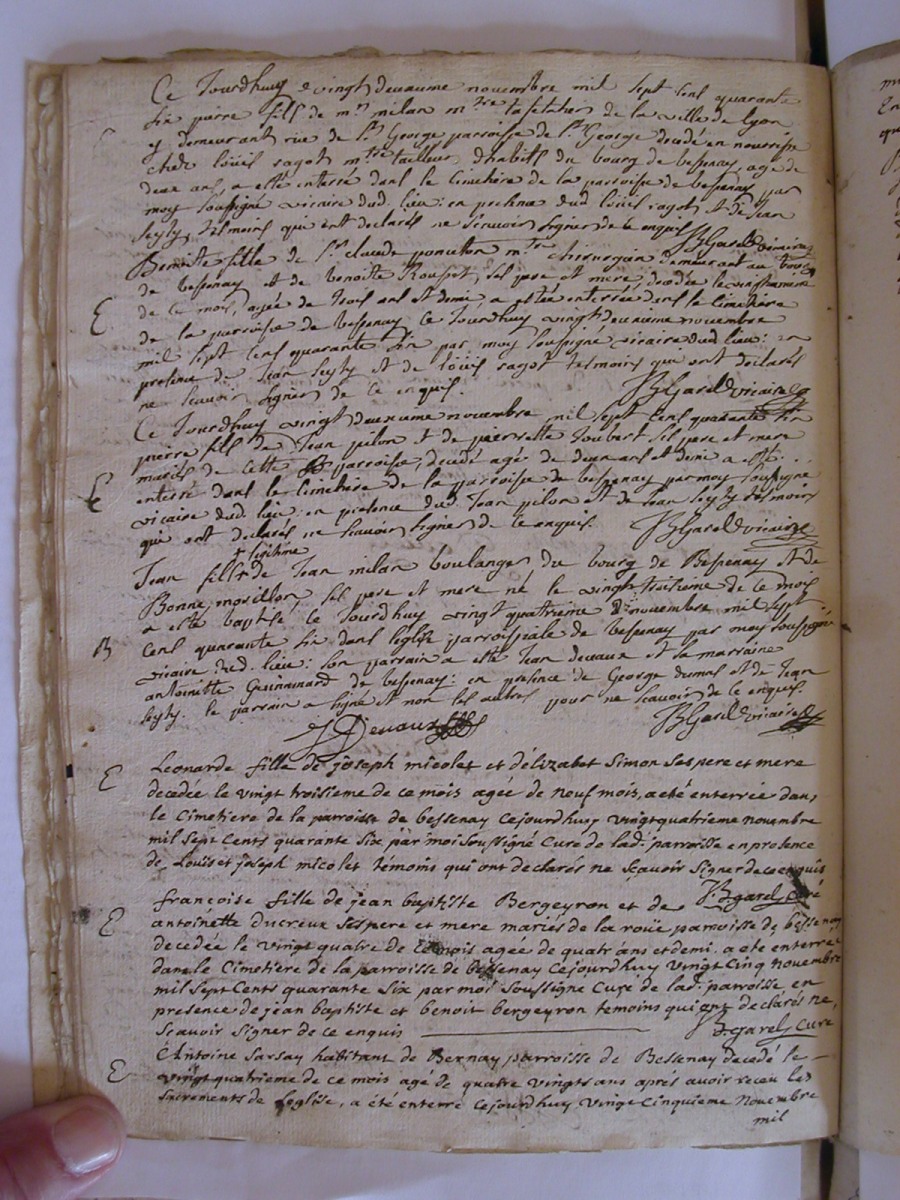 Ce Jourdhuy vingt deuxieme novembre mil sept cens quarante
six pierre fils de mr milan mtre tafetatier de la ville de Lyon
y demeurant rue de St George parroisse de St George decedé en nourrisse
chez loüis ragot mtre tailleur dhabits du bourg de bessenay agé de
deux ans, a esté enterré dans le Cimetiere de la parroisse de bessenay par
moy soussigné vicaire dud. lieu: en presence dud loüis ragot et de Jean
seyty, tesmoins qui ont declarés ne scauoir signer de ce enquis
BGarel vicaire
Benoite fille de Sr claude poncetton mtre chirurgien demeurant au bourg
de bessenay et de benoite Rousset, ses pere et mere, decedée le vingtunieme
E
de ce mois, agée de trois ans et demi a estée enterrée dans le Cimetiere
de la parroisse de bessenay Ce Jourdhuy vingt deuxieme novembre
mil sept cens quarante six par moy soussigné vicaire dud lieu: en
presence de Jean seyty et de loüis ragot tesmoins qui ont declarés
ne scauoir signer de ce enquis.
BGarel vicaire
Ce Jourdhuy vingt deuxieme novembre mil sept cens quarante six
pierre fils de Jean pilon et de pierrette Joubert ses pere et mere
mariés de cette parroisse, decedé agé de deux ans et demi a esté
E
enterré dans le Cimetiere de la parroisse de bessenay par moy soussigné
vicaire dud. lieu: en presence dud Jean pilon et de Jean seyty tesmoins
qui ont declarés ne scauoir signer de ce enquis.
BGarel vicaire
+ legitime
Jean fils+ de Jean milan boulanger du bourg de Bessenay et de
Bonne morillon, ses pere et mere né le vingt troisieme de ce mois
a esté baptisé le Jourdhuy vingt quatrieme novembre mil sept
B
cens quarante six dans leglise parroissiale de bessenay par moy soussigné
vicaire dud. lieu: son parrain a esté Jean devaux et sa marraine
antoinette de bessenay: en presence de George dumas et de Jean
seyty. le parrain a signé et non les autres pour ne scauoir de ce enquis.
J Devaux
BGarel vicaire
E
Leonarde fille de joseph micolet et délizabet Simon ses pere et mere
decedée le vingt troisieme de ce mois agée de neuf mois, a eté enterrée dans
le Cimetiere de la parroisse de bessenay cejourdhuy vingt quatrieme novembre
mil sept Cents quarante six par moi soussigné Curé de lad. parroisse en presence
de Loüis et joseph micolet témoins qui ont declarés ne scavoir signer de ce enquis
B. garel curé
E
francoise fille de jean baptiste Bergeyron et de
antoinette ducreux ses pere et mere mariés de la roüe parroisse de bessenay
decedée le vingt quatre de ce mois agée de quatr ans et demi. a eté enterrée
dans le Cimetiere de la parroisse de Bessenay Cejourdhuy vingt Cinq novembre
mil sept Cents quarante six par moi soussigné Curé de lad. parroisse en
presence de jean baptiste et benoit bergeyron temoins qui ont declarés ne
scavoir signer de ce enquis
B. garel curé
E
Antoine sarsay habitant de Bernay parroisse de Bessenay decedé le
vingt quatrieme de ce mois agé de quatre vingts ans aprés avoir receu les
sacrements de leglise, a été enterré cejourdhuy vingt Cinquieme Novembre
mil